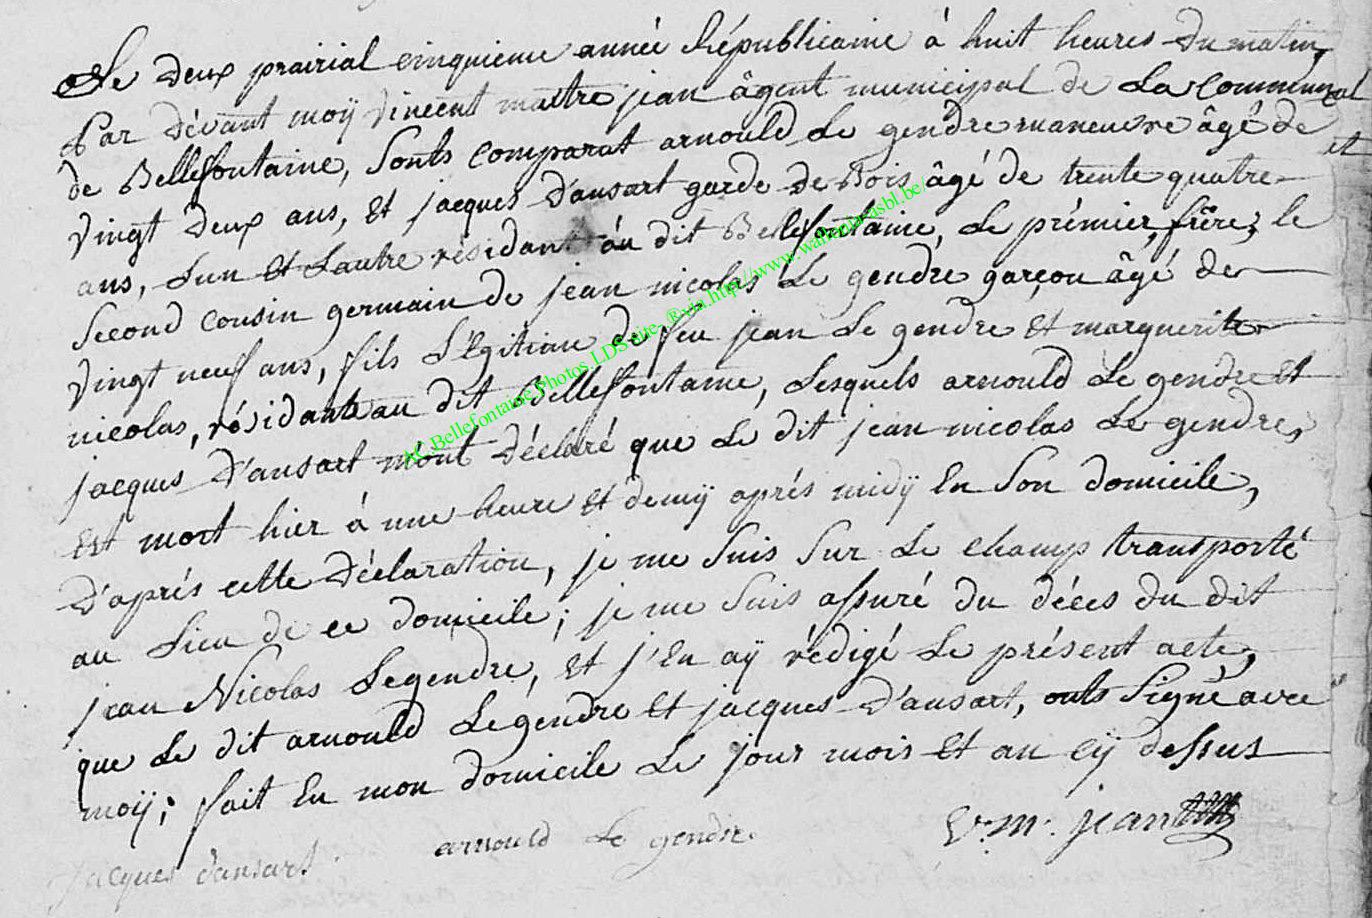 Le deux prairial cinquieme année Républicaine à huit heures du matin,
Par dévant moÿ vincent maître jean âgent municipal de La Commune
de Belleffontaine, sonts comparut arnould Le gendre manoeuvre âgé de
vingt deux ans, et jacques D'ansart garde de Bois âgé de trente quatre
ans, L'un et L'autre résidant au dit Belleffontaine, Le prémier, frère, le
second cousin germain de jean nicolas Le gendre garçon âgé de
vingt neuf ans, fils L'égitime de feu jean Le gendre et marguerite
nicolas, résidante au dit Belleffontaine, Lesquels arnould Le gendre et
jacques D'ansart m'ont déclaré que Le dit jean nicolas Le gendre,
est mort hier à une heure et demÿ après midÿ en son domicile,
D'aprés cette Déclaration, je me suis sur Le champ transporté
au Lieu de ce domicile; je me suis assuré du décès du dit
jean Nicolas Legendre, et j'en aÿ rédigé Le présent acte,
que Le dit arnould Legendre et jacques D'ansart, onts signé avec
moÿ; fait en mon domicile Le jour mois et an cÿ dessus
V. m. jean
arnould Le gendre
jacques dansart
AC Bellefontaine Photos LDS site